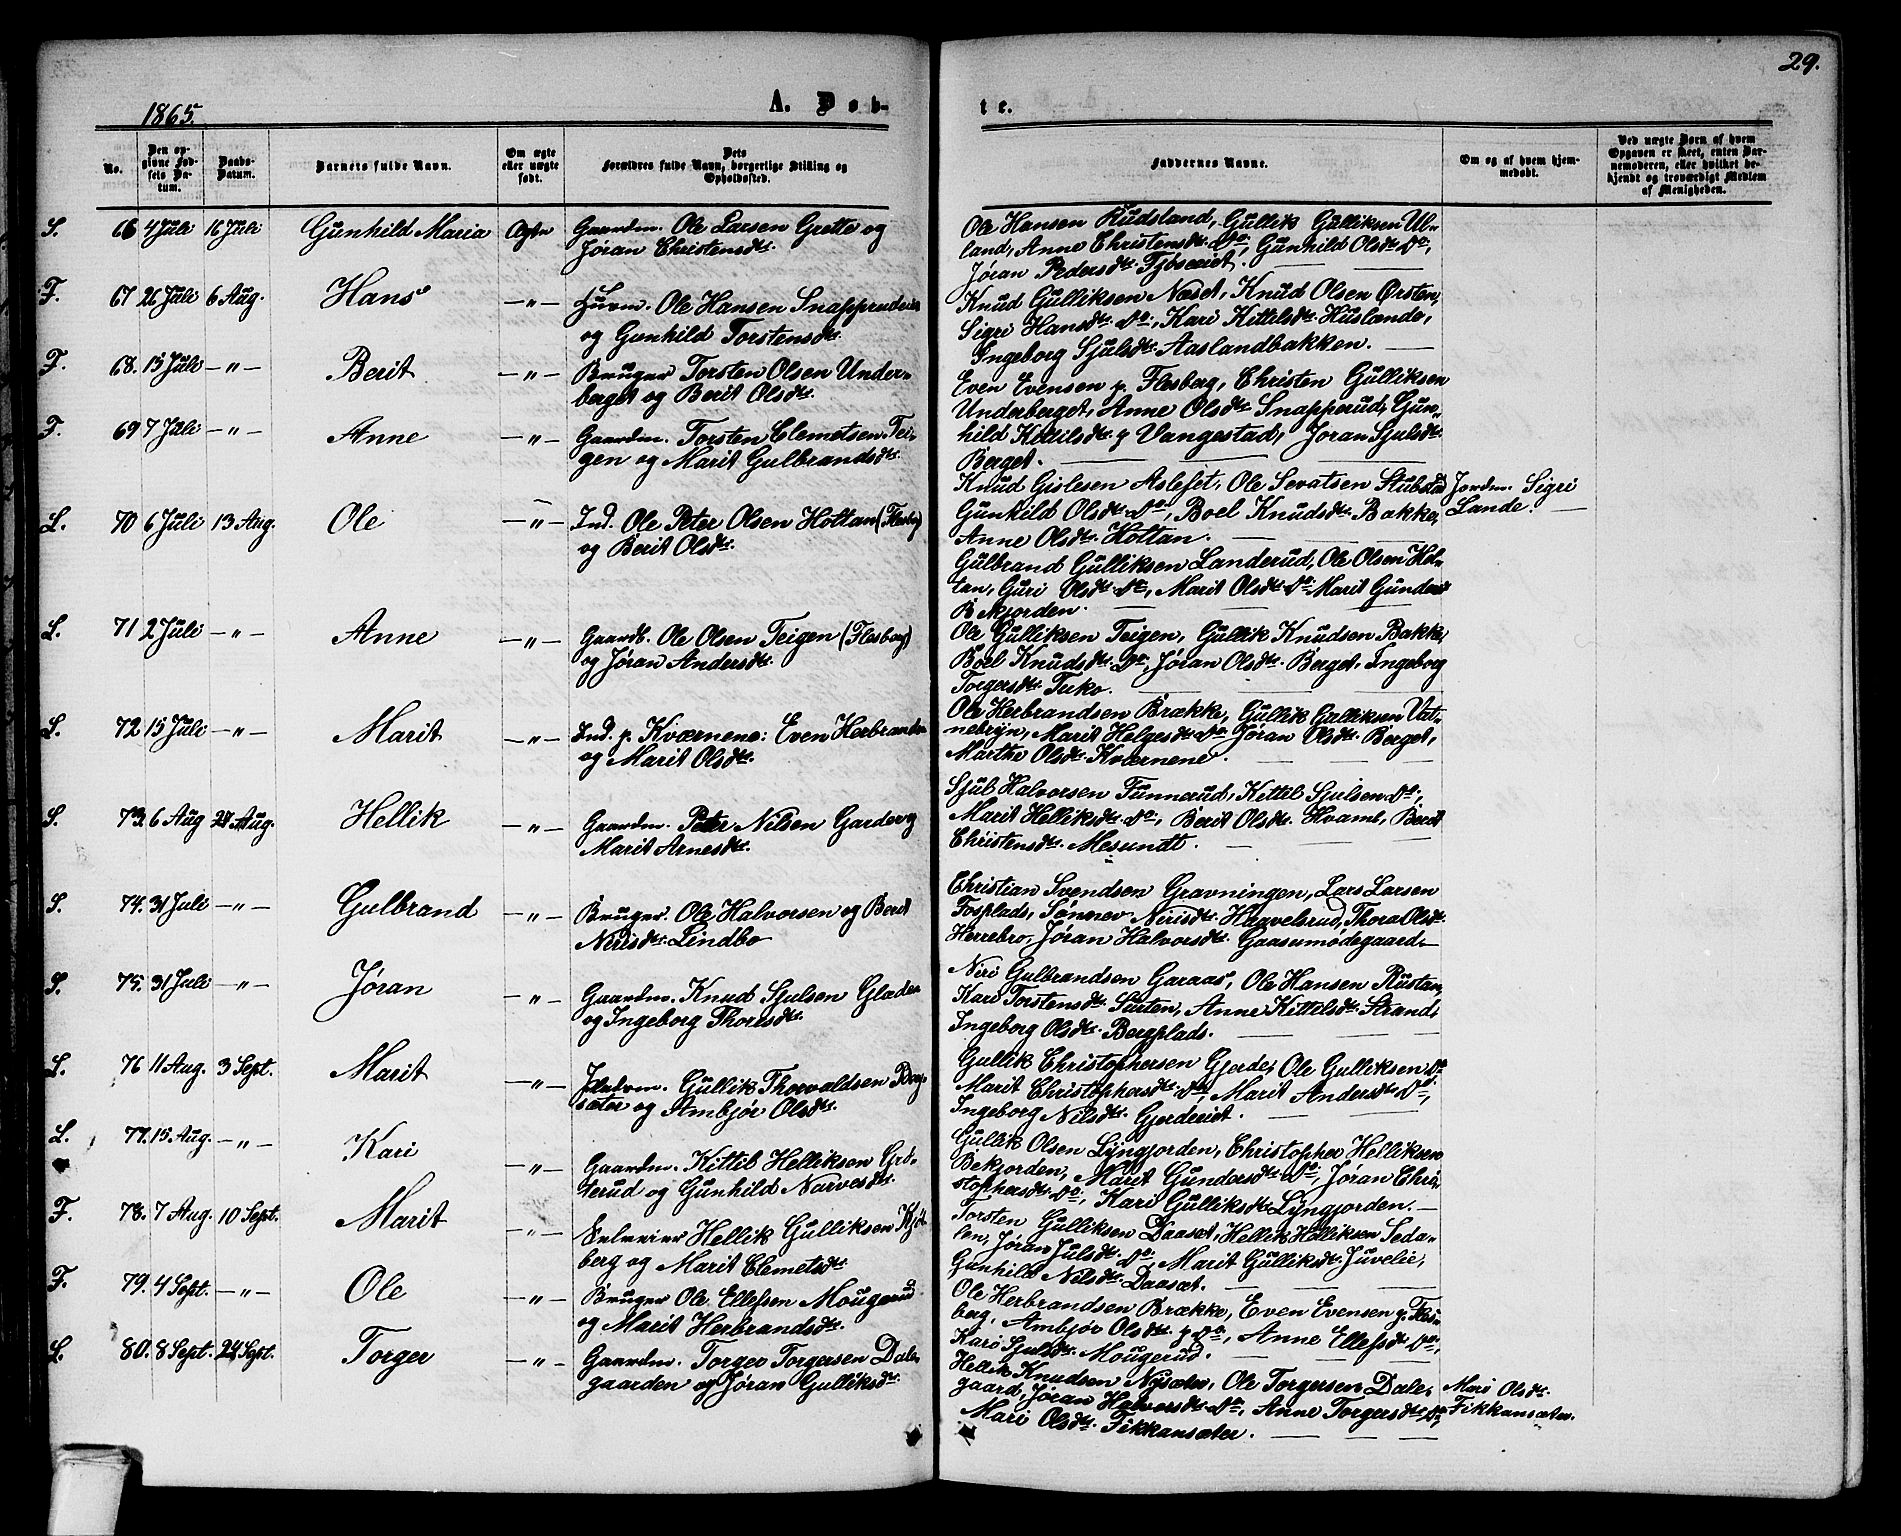 29.
1865.
A. Døb-
te.
No.
Den op-
givne Fød-
sels Da-
tum.
Daabs-
Datum.
Barnets fulde Navn.
Om ægte
eller uægte
født.
Dets
Forældres fulde Navn, borgerlige Stilling og
Opholdssted.
Faddernes Navne.
Om og af hvem hjem-
medøbt.
Ved uægte Børn af hvem
Opgaven er skeet, enten Bar-
nemoderen, eller hvilket be-
kjendt og troværdigt Medlem
af Menigheden.
S. 66 4 Juli 16 Juli Gunhild Maria Ægte Gaardm. Ole Larsen Grette og
Jøran Christensdtr.
Ole Hansen Rudsland, Gullik Gulliksen Ul-
land, Anne Christensdtr. Do, Gunhild Olsdtr. Do,
Jøran Pedersdtr.
F. 67 26 Juli 6 Aug. Hans —"— Huusm. Ole Hansen
og Gunhild Torstensdtr.
Knud Gulliksen Næset, Knud Olsen Ørsten,
Sigri Hansdtr. Do, Kari Kittilsdtr. Huslende,
Ingeborg Sjulsdtr. Aaslandbakken.
F. 68. 15 Juli —"— Berit —"— Bruger Torsten Olsen Under-
berget og Berit Olsdtr.
Even Evensen p. Flesberg, Christen Gulliksen
Underberget, Anne Olsdtr. Snapperud, Gun-
hild Kittilsdtr. p Vangestad, Jøran Sjulsdtr.
Berget.
F. 69 7 Juli —"— Anne —"— Gaardm. Torsten Clemetsen Tei-
gen og Marit Gulbrandsdtr.
L. 70 6 Juli 13 Aug. Ole —"— Ind. Ole Peter Olsen Hottan (Flesberg)
og Berit Olsdtr.
Knud Gislesen Aslefet, Ole Sevatsen Stubstad
Gunhild Olsdtr. Do, Boel Knudsdtr. Bakke,
Anne Olsdtr. Hottan.
Jordm. Sigri
Lande.
Gulbrand Gulliksen Landerud, Ole Olsen Hol-
tan, Guri Olsdtr. Do, Marit Olsdtr. Do Marit Gundersd
Bekjorden.
L. 71 2 Juli —"— Anne —"— Gaardb. Ole Olsen Teigen (Flesberg)
og Jøran Andersdtr.
Ole Gulliksen Teigen, Gullik Knudsen Bakke,
Boel Knudsdtr. Do, Jøran Olsdtr. Berget, Ingeborg
Torgersdtr. Tuko.
L. 72 15 Juli —"— Marit —"— Ind. p. Kværnene: Even Herbrandsen
og Marit Olsdtr.
Ole Herbrandsen Brække, Gullik Gulliksen Vat-
nebryn, Marit Helgesdtr. Do Jøran Olsdtr. Berget,
Marthe Olsdtr. Kværnene.
S. 73. 6 Aug 24 Aug. Hellik —"— Gaardm. Peter Nilsen Garder og
Marit Arnesdtr.
Sjul Halvorsen Funnerud, Kittel Sjulsen Do,
Marit Helliksdtr. Do, Berit Olsdtr. Hvaml, Berit
Christensdtr. Mesundt.
S. 74. 31 Juli —"— Gulbrand —"— Bruger. Ole Halvorsen og Berit
Nirisdtr. Lindbo
Christian Svendsen Gravningen, Lars Larsen
Fosplads, Sønnev Nirisdtr. Haavelsrud, Thora Olsdtr.
Herrebro, Jøran Halvorsdtr. Gaasumødegaard.
S. 75. 31 Juli —"— Jøran —"— Gaardm. Knud Sjulsen Glader
og Ingeborg Thoresdtr.
Niri Gulbrandsen Garaas, Ole Hansen Rusten,
Kari Torstensdtr. Surten, Anne Kittelsdtr. Strand,
Ingeborg Olsdtr. Bergplads.
L. 76 11 Aug. 3 Sept. Marit —"— Gullik Thorvaldsen
sæter og Ambjør Olsdtr.
Gullik Christophersen Gjerde, Ole Gulliksen Do
Marit Christophersdtr. Do, Marit Andersdtr Do,
Ingeborg Nilsdtr. Gjerdeeiet.
L. 77. 15 Aug. —"— Kari —"— Gaardm. Kittil Helliksen Grø-
terud og Gunhild Narvesdtr.
Gullik Olsen Lyngjorden, Christopher Helliksen
Bekjorden, Marit Gundersdtr. Do, Jøran Chri-
stophersdtr. Do, Kari Gulliksdtr. Lyngjorden.
F. 78. 7 Aug. 10 Sept. Marit —"— Selveier Hellik Gulliksen
berg og Marit Clemetsdtr.
Torsten Gulliksen Daaset, Hellik Helliksen Seda-
len, Jøran Julsdtr. Do. Marit Gulliksdtr. Juvelie,
Gunhild Nilsdtr. Daaset.
F. 79. 4 Sept. —"— Ole —"— Bruger Ole Ellefsen Mougerud
og Marit Herbrandsdtr.
Ole Herbrandsen Brække, Even Evensen p. Fles-
berg, Ambjør Olsdtr. p Do, Anne Ellefsdtr Do,
Kari Sjulsdtr. Mougerud.
L. 80. 8 Sept. 24 Sept. Torger —"— Gaardm. Torger Torgersen Dale-
gaarden og Jøran Gulliksdtr.
Hellik Knudsen Nysæter, Ole Torgersen Dale-
gaard, Jøran Halvorsdtr. Do, Anne Torgersdtr. Do,
Mari Olsdtr. Fikkansæter.
Mari Olsdtr.
Fikkansæter.